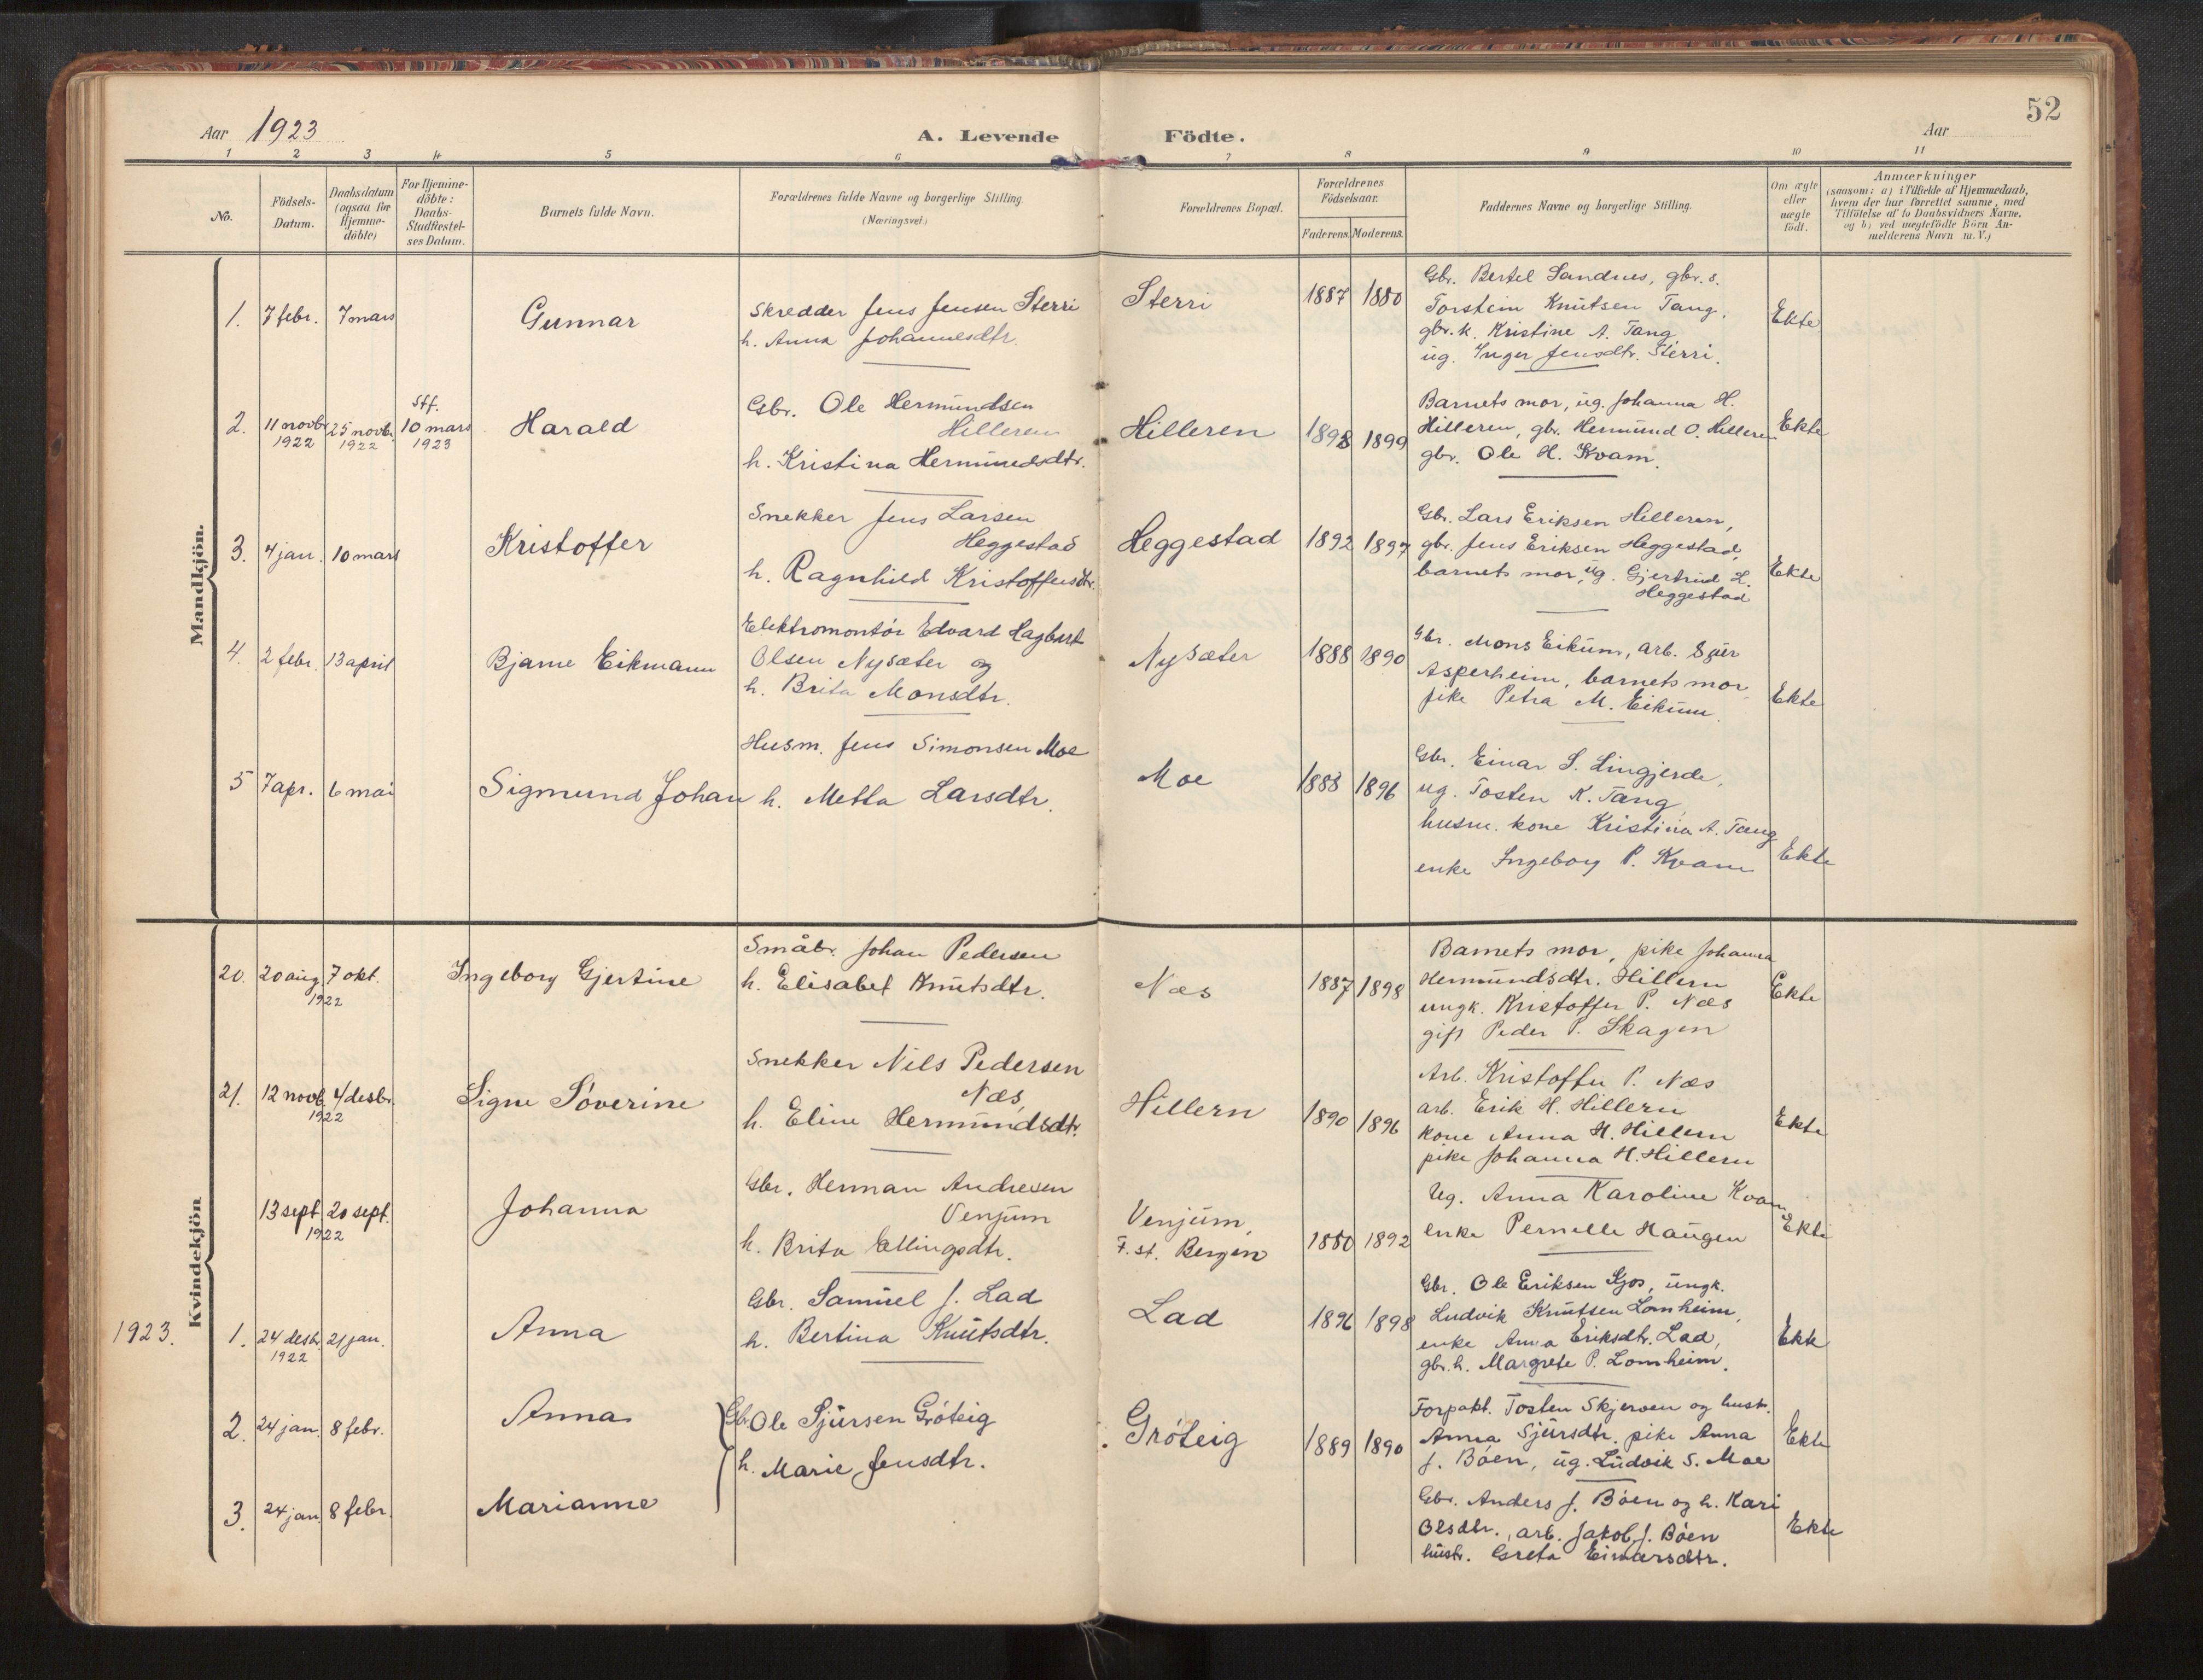 52
Aar 1923 A. Levende Födte. Aar
1 2 3 4 5 6 7 8 9 10 11
No.
Födsels-Datum.
Daabsdatum (ogsaa for Hjemme-döbte)
For Hjemme-döbte: Daabs-Stadfæstel-ses Datum.
Barnets fulde Navn.
Forældrenes fulde Navne og borgerlige Stilling.
(Næringsvei)
Forældrenes Bopæl.
Forældrenes Födselsaar.
Faderens. Moderens.
Faddernes Navne og borgerlige Stilling.
Om ægte eller uægte födt.
Anmærkninger
(saasom: a) i Tilfælde af Hjemmedaab,
hvem der har forrettet samme, med
Tilföielse af to Daabsvidners Navne.
og b) ved uægtefödte Börn An-
melderens Navn m. V.)
Mandkjön.
1. 7 febr. 7 mars
Gunnar
Skredder Jens Jensen Sterri
h. Anna Johannesdtr.
Sterri
1887 1880
Gbr. Bertel Sandnes, gbr. s.
Torstein Knutsen Tang,
gbr. k. Kristine A. Tang
ug. Inger Jensdtr. Sterri.
Ekte
2. 11 novbr 1922 25 novbr. 1922
Stf. 10 mars 1923
Harald
Gbr. Ole Hermundsen
Hilleren
h. Kristina Hermundsdtr.
Hilleren
1898 1899
Barnets mor, ug. Johanna H.
Hilleren, gbr. Hermund O. Hilleren
gbr. Ole H. Kvam.
Ekte
3. 4 jan. 10 mars
Kristoffer
Snekker Jens Larsen
Heggestad
h. Ragnhild Kristoffersdtr.
Heggestad
1892 1897
Gbr. Lars Eriksen Hilleren,
gbr. Jens Eriksen Heggestad,
barnets mor, ug. Gjertrud L.
Heggestad
Ekte
4. 2 febr. 13 april
Bjarne Eikmann
Elektromontör Edvard Hagbart
Olsen Nysæter og
h. Brita Monsdtr.
Nysæter
1888 1890
Gbr. Mons Eikum, arb. Sjur
Asperheim, barnets mor,
pike Petra M. Eikum.
Ekte
5 7 apr. 6 mai
Sigmund Johan
Husm. Jens Simonsen Moe
h. Metta Larsdtr.
Moe
1888 1896
Gbr. Einar S. Lingjerde,
ug. Tosten K. Tang,
husm. kone Kristina A. Tang
enke Ingeborg P. Kvam
Ekte
Kvindekjön
20. 20 aug. 7 okt. 1922
Ingeborg Gjertine
Småbr. Johan Pedersen
h. Elisabet Knutsdtr.
Næs
1887 1898
Barnets mor, pike Johanna
Hermundsdtr. Hillern
ungk. Kristoffer P. Næs
gift Peder P. Skagen
Ekte
21. 12 novb. 4/desbr. 1922
Signe Söverine
Snekker Nils Pedersen
Næs,
h. Eline Hermundsdtr.
Hillern
1890 1896
Arb. Kristoffer P. Næs
arb. Erik H. Hillern
kone Anna H. Hillern
pike Johanna H. Hillern
Ekte
13 sept. 20 sept. 1922
Johanna
Gbr. Herman Andresen
Venjum
h. Brita Ellingsdtr.
Venjum,
F. st. Bergen
1880 1892
Ug. Anna Karoline Kvam
enke Pernille Haugen
Ekte
1923.
1. 24 desbr. 1922 21 jan.
Anna
Gbr. Samuel J. Lad
h. Bertina Knutsdtr.
Lad
1896 1898
Gbr. Ole Eriksen Kjos, ungk.
Ludvik Knutsen Lomheim,
enke Anna Eriksdtr. Lad,
gbr. h. Margrete P. Lomheim.
Ekte
2. 24 jan. 8 febr.
Anna
Gbr. Ole Sjursen Gröteig
h. Marie Jensdtr.
Gröteig
1889 1890
Forpakt. Tosten Skjerven og hustr.
Anna Sjursdtr. pike Anna
J. Böen, ug. Ludvik S. Moe
Ekte
3. 24 jan. 8 febr.
Marianne
Gbr. Anders J. Böen og h. Kari
Olsdtr., arb. Jakob J. Böen
hustr. Greta Einarsdtr.
Ekte